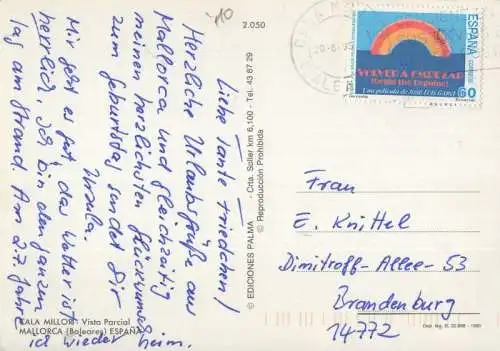 Liebe Tante Friedchen!
Herzliche Urlaubsgrüße aus
Mallorca und gleichzeitig
meinen herzlichsten Glückwunsch
zum Geburtstag sendet Dir
Ursula.
Mir geht es gut, das Wetter ist
herrlich, ich bin den ganzen
Tag am Strand. Am 27. fahre
ich wieder heim.
CALA MILLOR - Vista Parcial
MALLORCA (Baleares) ESPAÑA
'10
2.050
© EDICIONES PALMA - Crta. Soller km 6,100 - Tel. 43 87 29
© Reproducción Prohibida
ESPAÑA
CORREOS
VOLVER A EMPEZAR
(Begin the Beguine)
Una película de JOSÉ LUIS GARCI
60
Frau
E. Knittel
Dimitroff-Allee-53
Brandenburg
14772